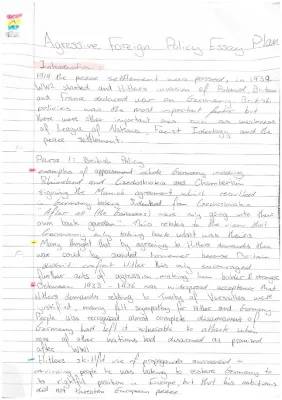 Agressive Foreign Policy Essay Plan
Introduction:
1919 the peace settlement were passed, in 1939
WW2 started and Hitlers invasion of Poland. Britain
and France declared war on Germany. British
policies was the most important factor but
there were other important ones such as weakness
of League of Nations, Facist Ideology and the
peace settlement.
Para 1: British Policy
examples of appeasement include Germany
Rhineland and Czechoslovakia and Chamberlain
signing the Munich agreement which
Germany taking Sudetenland from Czechoslovakia
"After all the Germans have only going into their
own back garden". This relates to the view that
Germany only taking back what was theirs
Many thought that by agreeing to Hitlers demands then
war could be avoided however because Britain
didn't confront Hitler this only encouraged
further acts of aggression making him stronger
Between 1933 - 1936 was widespread acceptance that
Hitlers demands relating to Treaty of Versailles were
justified, many felt sympathy for Hitler and Germany
People also recognised almost complete disarmament of
Germany had left it vulnerable to attack when
none of other nations had disarmed as promised
after WW1
Hitlers skillful use of propaganda succeeded in
convincing people he was looking to restore Germany to
its rightful position in Europe, but that his ambitions
did not threaten European peace